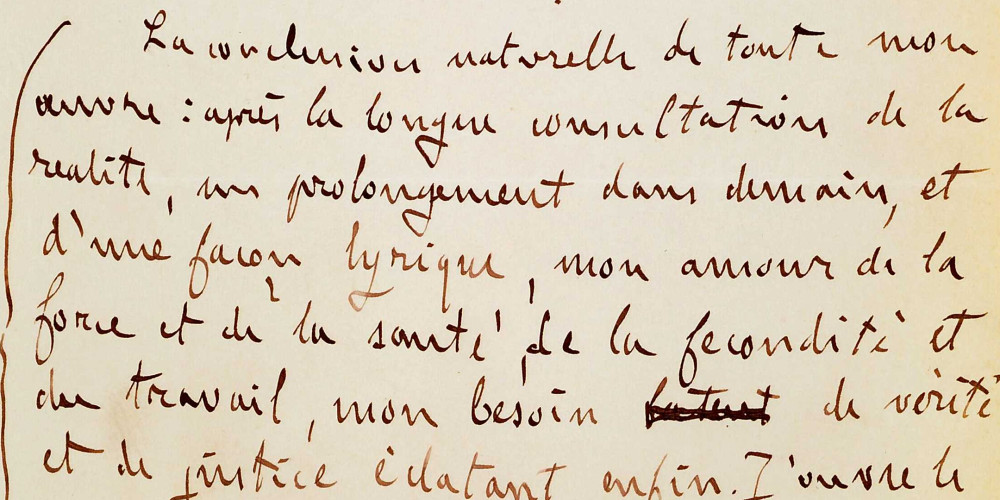 La conclusion naturelle de toute mon
œuvre : après la longue consultation de la
réalité, un prolongement dans demain, et
d'une façon lyrique, mon amour de la
force et de la santé, de la fécondité et
du travail, mon besoin latent de vérité
et de justice éclatant enfin. J'ouvre le